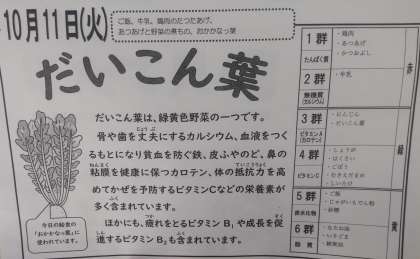 10月11日(火)
ご飯、牛乳、鶏肉のたつたあげ、
あつあげと野菜の煮もの、おかかなっ葉
だいこん葉
だいこん葉は、緑黄色野菜の一つです。
骨や歯を丈夫にするカルシウム、血液をつく
じょうぶ
るもとになり貧血を防ぐ鉄、皮ふやのど、鼻の
粘膜を健康に保つカロテン、体の抵抗力を高
ねんまく
ていこうりょく
めてかぜを予防するビタミンCなどの栄養素が
多く含まれています。
ほかにも、疲れをとるビタミンB₁や成長を促
つか
進するビタミンB₂も含まれています。
今日の給食の
「おかかなっ葉」に
使われています。
1群
たんぱく質
・鶏肉
・あつあげ
・かつおぶし
2群
無機質
(カルシウム)
・牛乳
3群
ビタミンA
(カロテン)
・にんじん
・だいこん葉
4群
ビタミンC
・しょうが
・はくさい
・ごぼう
・むきえだまめ
・しいたけ
5群
炭水化物
・ご飯
・じゃがいもでん粉
・砂糖
6群
脂質
・なたね油
・いりごま